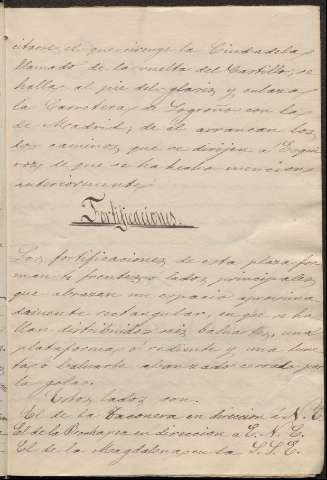 citarse, el que circuye la Ciudadela
llamado de la vuelta del Castillo, se
halla al pie del glasis y enlaza
la Carretera de Logroño con la
de Madrid; de él arrancan los
dos caminos que se dirijen a
de que se ha hecho mencion
anteriormente.
Fortificaciones.
Las fortificaciones de esta plaza for
man frentes ó lados principales,
que abrazan un espacio aproxima
damente rectangular, en que se ha
llan distribuidos seis baluartes, una
plataforma ó rediente y una lune
ta ó baluarte abanzado cerrado por
la gola.
Estos lados son.
El de la Taconera en direccion á N. E.
El de la Rochapea en direccion á E. N. E.
El de la Magdalena, en la S. S. E.